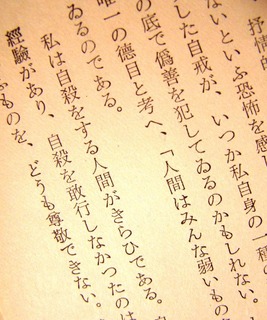 抒情的
ないといふ恐怖を感じ
した自戒が、いつか私自身の一種の
の底で僞善を犯してゐるのかもしれない。
唯一の德目と考へ、「人間はみんな弱いもの
ゐるのである。
私は自殺をする人間がきらひである。自
自殺を敢行しなかつたのは
經驗があり、
どうも尊敬できない。
ふものを、